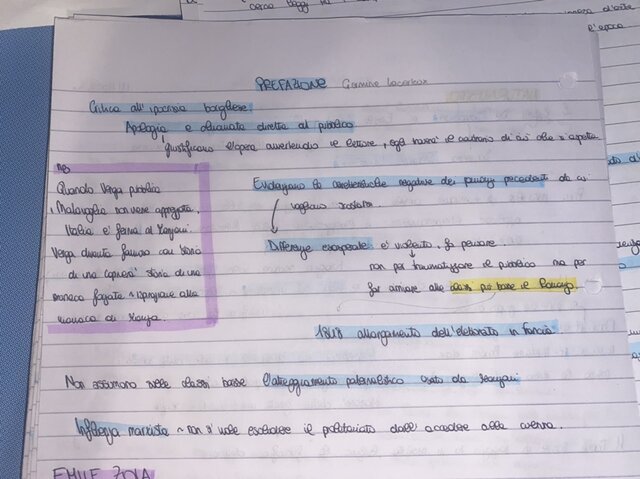 PREFAZIONE Germinie Lacerteux
Critica all'ipocrisia borghese
Apologia e chiamata diretta al pubblico
giustificano l'opera avvertendo il lettore, egli troverà il contrario di ciò che si aspetta
NB
Quando Verga pubblica
I Malavoglia non viene apprezzato,
Italia è ferma al Manzoni
Verga diventa famoso con storia
di una capinera storia di una
monaca forzata ~ ispirazione alla
monaca di Monza.
Evidenziano le caratteristiche negative dei romanzi precedenti da cui
vogliono
Differenze: è violento, fa pensare
non per traumatizzare il pubblico ma per
far arrivare alle classi più basse il Romanzo
1848 allargamento dell'elettorato in Francia.
Non assumono nelle classi basse l'atteggiamento paternalistico usato da Manzoni
marxista ~ non si vuole escludere il proletariato dall'accedere alla
EMILE ZOLA